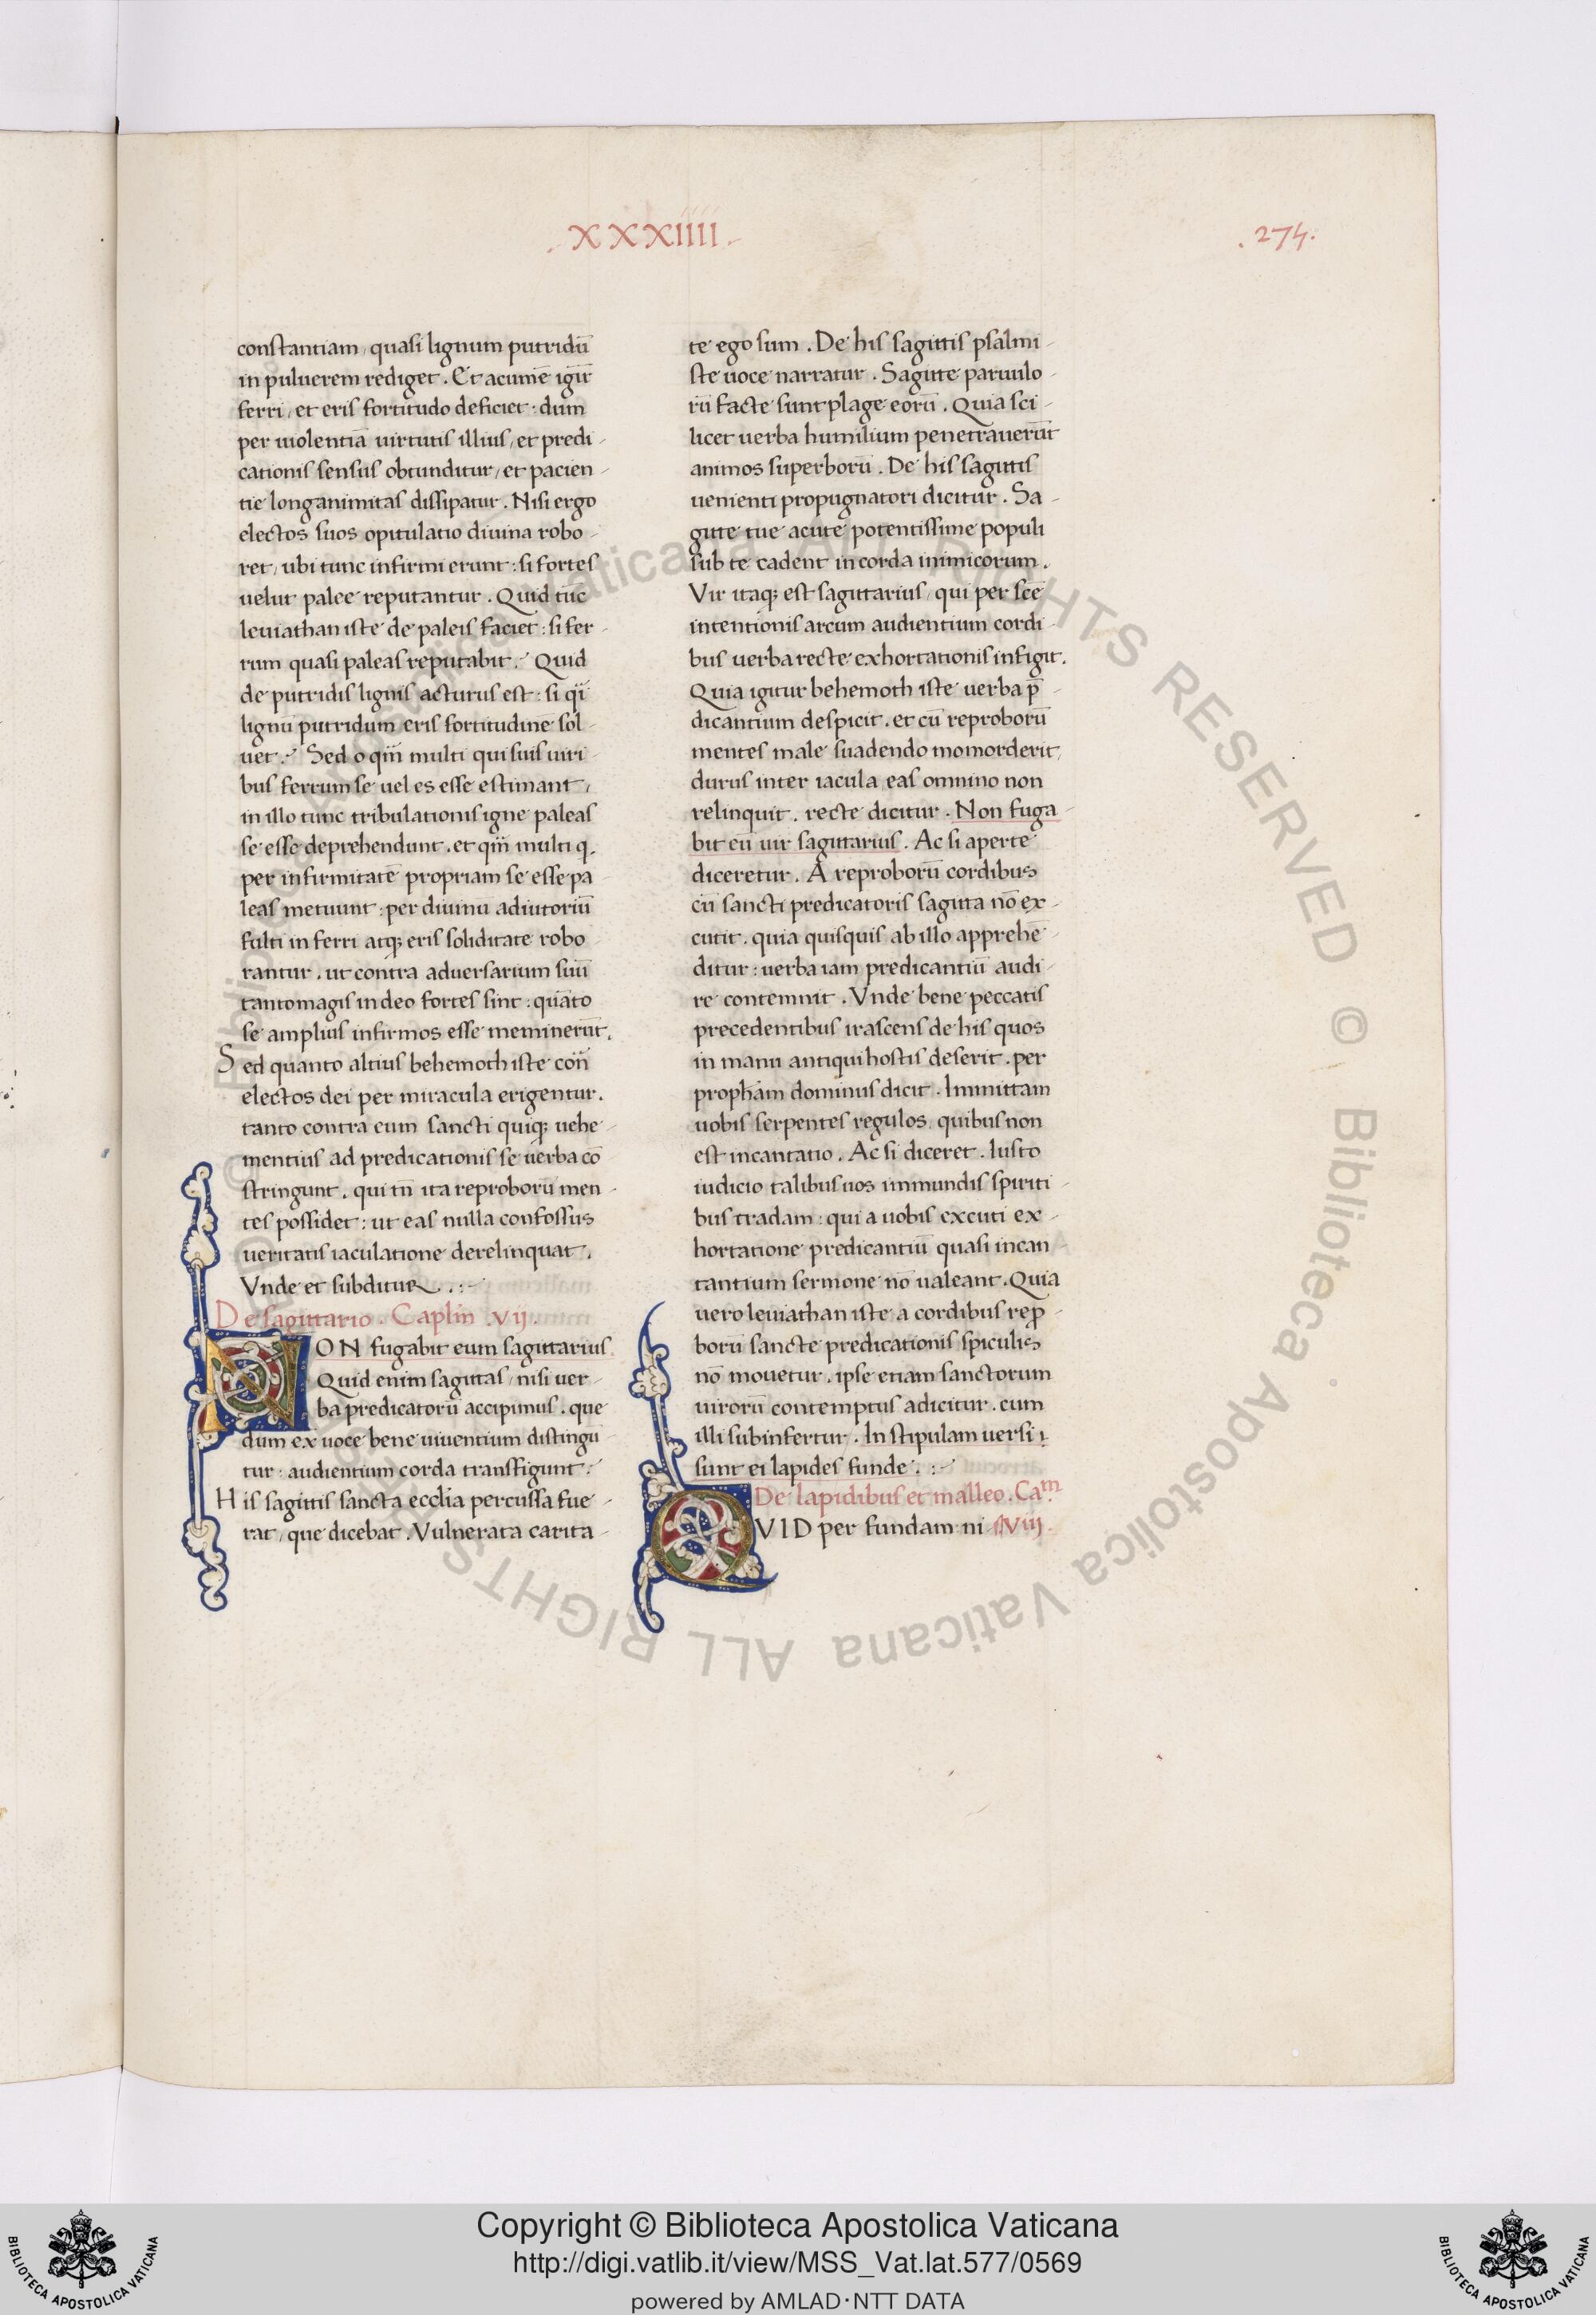 .XXXIIII.
.274.
constantiam, quasi lignum putridū
in puluerem rediget. Et acumē igit̄
ferri, et eris fortitudo deficiet: dum
per uiolentiā uirtutis illius, et predi-
cationis sensus obtunditur, et pacien-
tie longanimitas dissipatur. Nisi ergo
electos suos opitulatio diuina robo-
ret, ubi tunc infirmi erunt: si fortes
uelut palee reputantur. Quid tūc
leuiathan iste de paleis faciet: si fer-
rum quasi paleas reputabit. Quid
de putridis lignis acturus est: si q̄i
lignū putridum eris fortitudinē sol-
uet. Sed o qm̄ multi qui suis uiri-
bus ferrum se uel es esse estimant,
in illo tunc tribulationis igne paleas
se esse deprehendunt. et qm̄ multi q.
per infirmitatē propriam se esse pa
leas metuunt: per diuinū adiutoriū
fulti in ferri atq; eris soliditate robo-
rantur. ut contra aduersarium suū
tantomagis in deo fortes sint: quāto
se amplius infirmos esse meminerūt.
Sed quanto altius behemoth iste con̄
electos dei per miracula erigentur.
tanto contra eum sancti quiq; uehe-
mentius ad predicationis se uerba cō
stringunt. qui tn̄ ita reproborū men-
tes possidet: ut eas nulla confossus
ueritatis iaculatione derelinquat.
Vnde et subditur.:-
De sagittario. Caplm̄ .vij.
NON fugabit eum sagittarius.
Quid enim sagittas, nisi uer-
ba predicatorū accipimus. que
dum ex uoce bene uiuentium distingū
tur: audientium corda transfigunt.
His sagittis sancta ecclīa percussa fue-
rat, que dicebat. Vulnerata carita-
te ego sum. De his sagittis psalmi-
ste uoce narratur. Sagitte paruulo-
rū facte sunt plage eorū. Quia sci-
licet uerba humilium penetrauerūt
animos superborū. De his sagittis
uenienti propugnatori dicitur. Sa-
gitte tue acute potentissime populi
sub te cadent in corda inimicorum.
Vir itaq; est sagittarius, qui per scē
intentionis arcum audientium cordi-
bus uerba recte exhortationis infigit.
Quia igitur behemoth iste uerba p̄-
dicantium despicit. et cū reproborū
mentes male suadendo momorderit,
durus inter iacula eas omnino non
relinquit. recte dicitur. Non fuga-
bit eū uir sagittarius. Ac si aperte
diceretur. A reproborū cordibus
cū sancti predicatoris sagitta nō ex-
cutit. quia quisquis ab illo apprehē-
ditur: uerba iam predicantiū audi-
re contemnit. Vnde bene peccatis
precedentibus irascens de his quos
in manu antiqui hostis deserit. per
propħam dominus dicit. Immittam
uobis serpentes regulos, quibus non
est incantatio. Ac si diceret. Iusto
iudicio talibus uos immundis spiriti-
bus tradam: qui a uobis excuti ex-
hortatione predicantiū quasi incan-
tantium sermone nō ualeant. Quia
uero leuiathan iste a cordibus rep̄-
borū sancte predicationis spiculis
nō mouetur. ipse etiam sanctorum
uirorū contemptus adicitur. cum
illi subinfertur. In stipulam uersi
sunt ei lapides funde.:-
De lapidibus et malleo. Cam.
QVID per fundam ni- viij.
Copyright © Biblioteca Apostolica Vaticana
http://digi.vatlib.it/view/MSS_Vat.lat.577/0569
powered by AMLAD·NTT DATA
BIBLIOTECA APOSTOLICA VATICANA
BIBLIOTECA APOSTOLICA VATICANA
© Biblioteca Apostolica Vaticana ALL RIGHTS RESERVED © Biblioteca Apostolica Vaticana ALL RIGHTS RESERVED